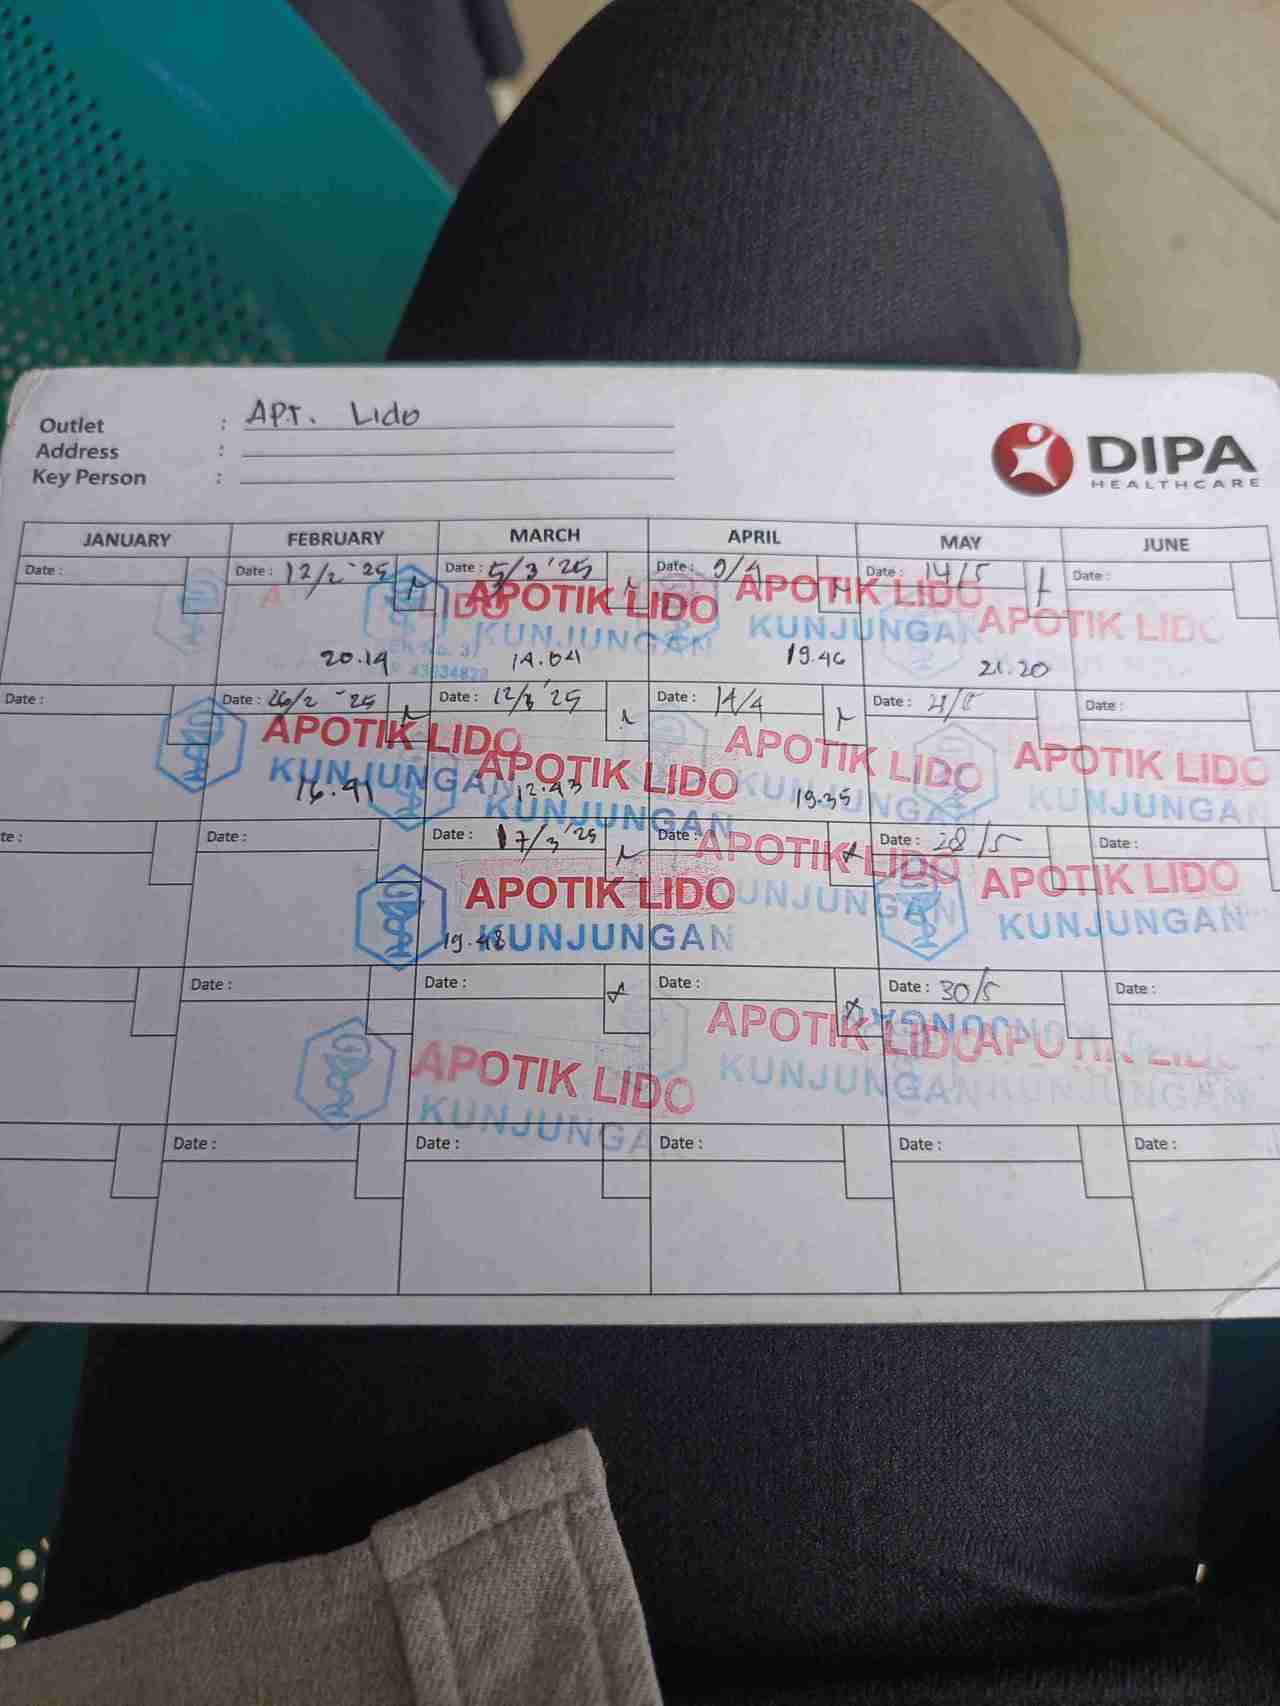 Outlet : APT. Lido
Address :
Key Person :
DIPA
HEALTHCARE
JANUARY FEBRUARY MARCH APRIL MAY JUNE
Date : Date : 12/2 '25 Date : 5/3 '25 Date : 9/4 Date : 14/5 Date :
APOTIK LIDO APOTIK LIDO APOTIK LIDO
KUNJUNGAN KUNJUNGAN
20.14 14.04 19.46 21.20
Date : Date : 26/2 '25 Date : 12/3 '25 Date : 14/4 Date : Date :
APOTIK LIDO APOTIK LIDO APOTIK LIDO APOTIK LIDO
KUNJUNGAN KUNJUNGAN KUNJUNGAN KUNJUNGAN
16.41 12.43 19.35
te : Date : Date : 17/3 '25 Date : Date : 28/5 Date :
APOTIK LIDO APOTIK LIDO APOTIK LIDO
KUNJUNGAN KUNJUNGAN KUNJUNGAN
19.48
Date : Date : Date : Date : 30/5 Date :
APOTIK LIDO APOTIK LIDO
KUNJUNGAN KUNJUNGAN KUNJUNGAN
Date : Date : Date : Date : Date :